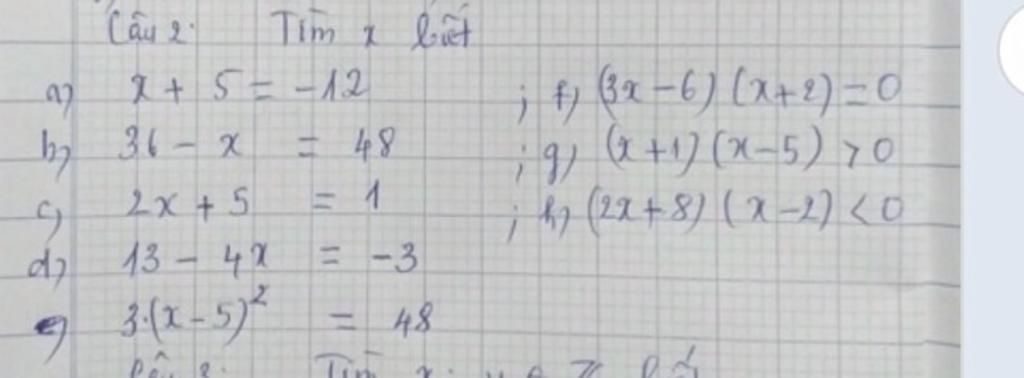 Câu 2: Tìm x biết
a) x + 5 = -12 ; f) (3x - 6) (x + 2) = 0
b) 36 - x = 48 ; g) (x + 1) (x - 5) > 0
c) 2x + 5 = 1 ; h) (2x + 8) (x - 2) < 0
d) 13 - 4x = -3
e) 3.(x - 5)² = 48
Tìm x